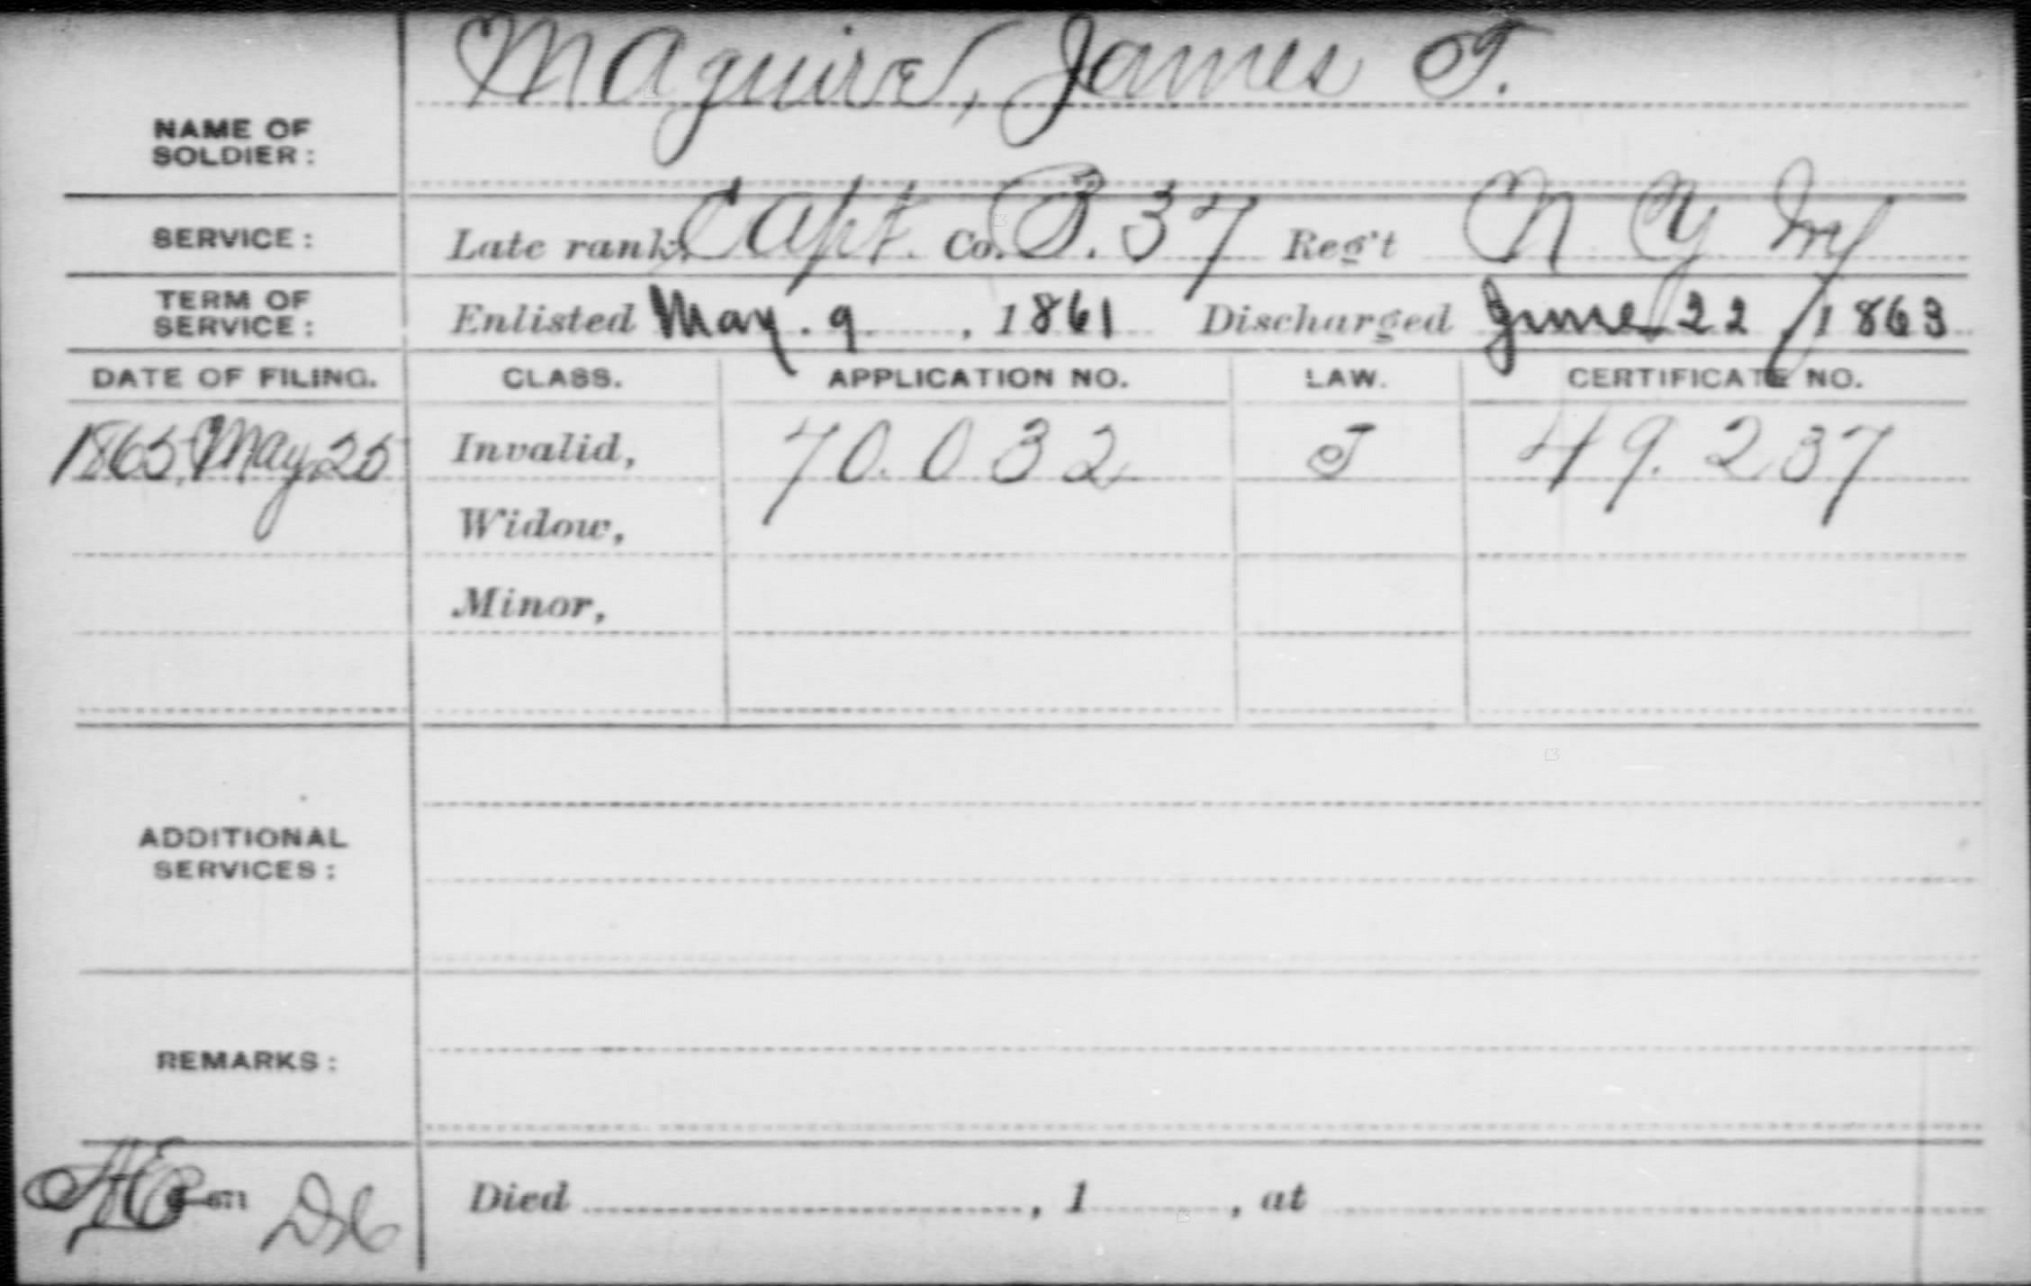 Maguire, James T.
NAME OF
SOLDIER:
SERVICE: Late rank, Capt. Co. B. 37 Reg't N Y Inf
TERM OF
SERVICE: Enlisted May. 9, 1861 Discharged June 22, 1863
DATE OF FILING. CLASS. APPLICATION NO. LAW. CERTIFICATE NO.
1865, May 25 Invalid, 70.032 J 49.237
Widow,
Minor,
ADDITIONAL
SERVICES:
REMARKS:
Died , 1 , at